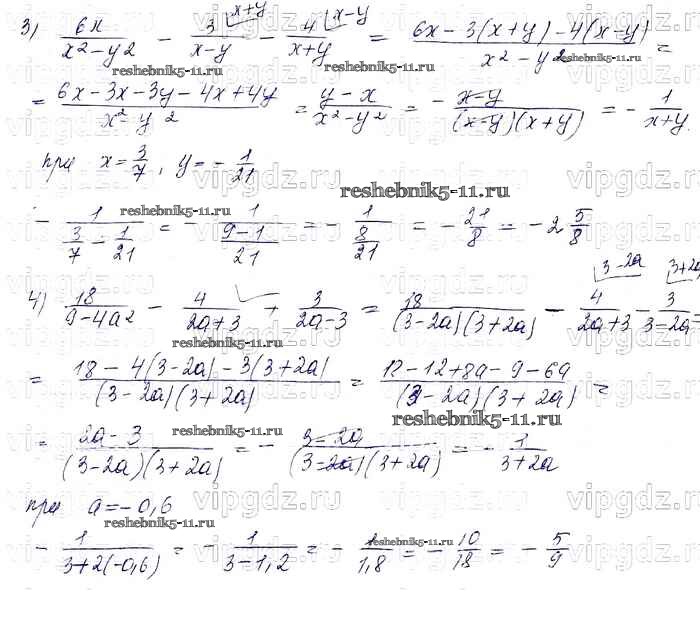 3) 6x/(x²-y²) - 3/(x-y) ^(x+y) - 4/(x+y) ^(x-y) = (6x-3(x+y)-4(x-y))/(x²-y²) =
= (6x-3x-3y-4x+4y)/(x² y²) = (y-x)/(x²-y²) = - (x-y)/((x-y)(x+y)) = - 1/(x+y)
при x = 3/7, y = - 1/21
- 1/(3/7 - 1/21) = - 1/((9-1)/21) = - 1/(8/21) = - 21/8 = -2 5/8
4) 18/(9-4a²) - 4/(2a+3) + 3/(2a-3) = 18/((3-2a)(3+2a)) - 4/(2a+3) ^(3-2a) - 3/(3-2a) ^(3+2a) =
= (18-4(3-2a)-3(3+2a))/((3-2a)(3+2a)) = (18-12+8a-9-6a)/((3-2a)(3+2a)) =
= (2a-3)/((3-2a)(3+2a)) = - (3-2a)/((3-2a)(3+2a)) = - 1/(3+2a)
при a = -0,6
- 1/(3+2(-0,6)) = - 1/(3-1,2) = - 1/1,8 = - 10/18 = - 5/9
reshebnik5-11.ru
vipgdz.ru